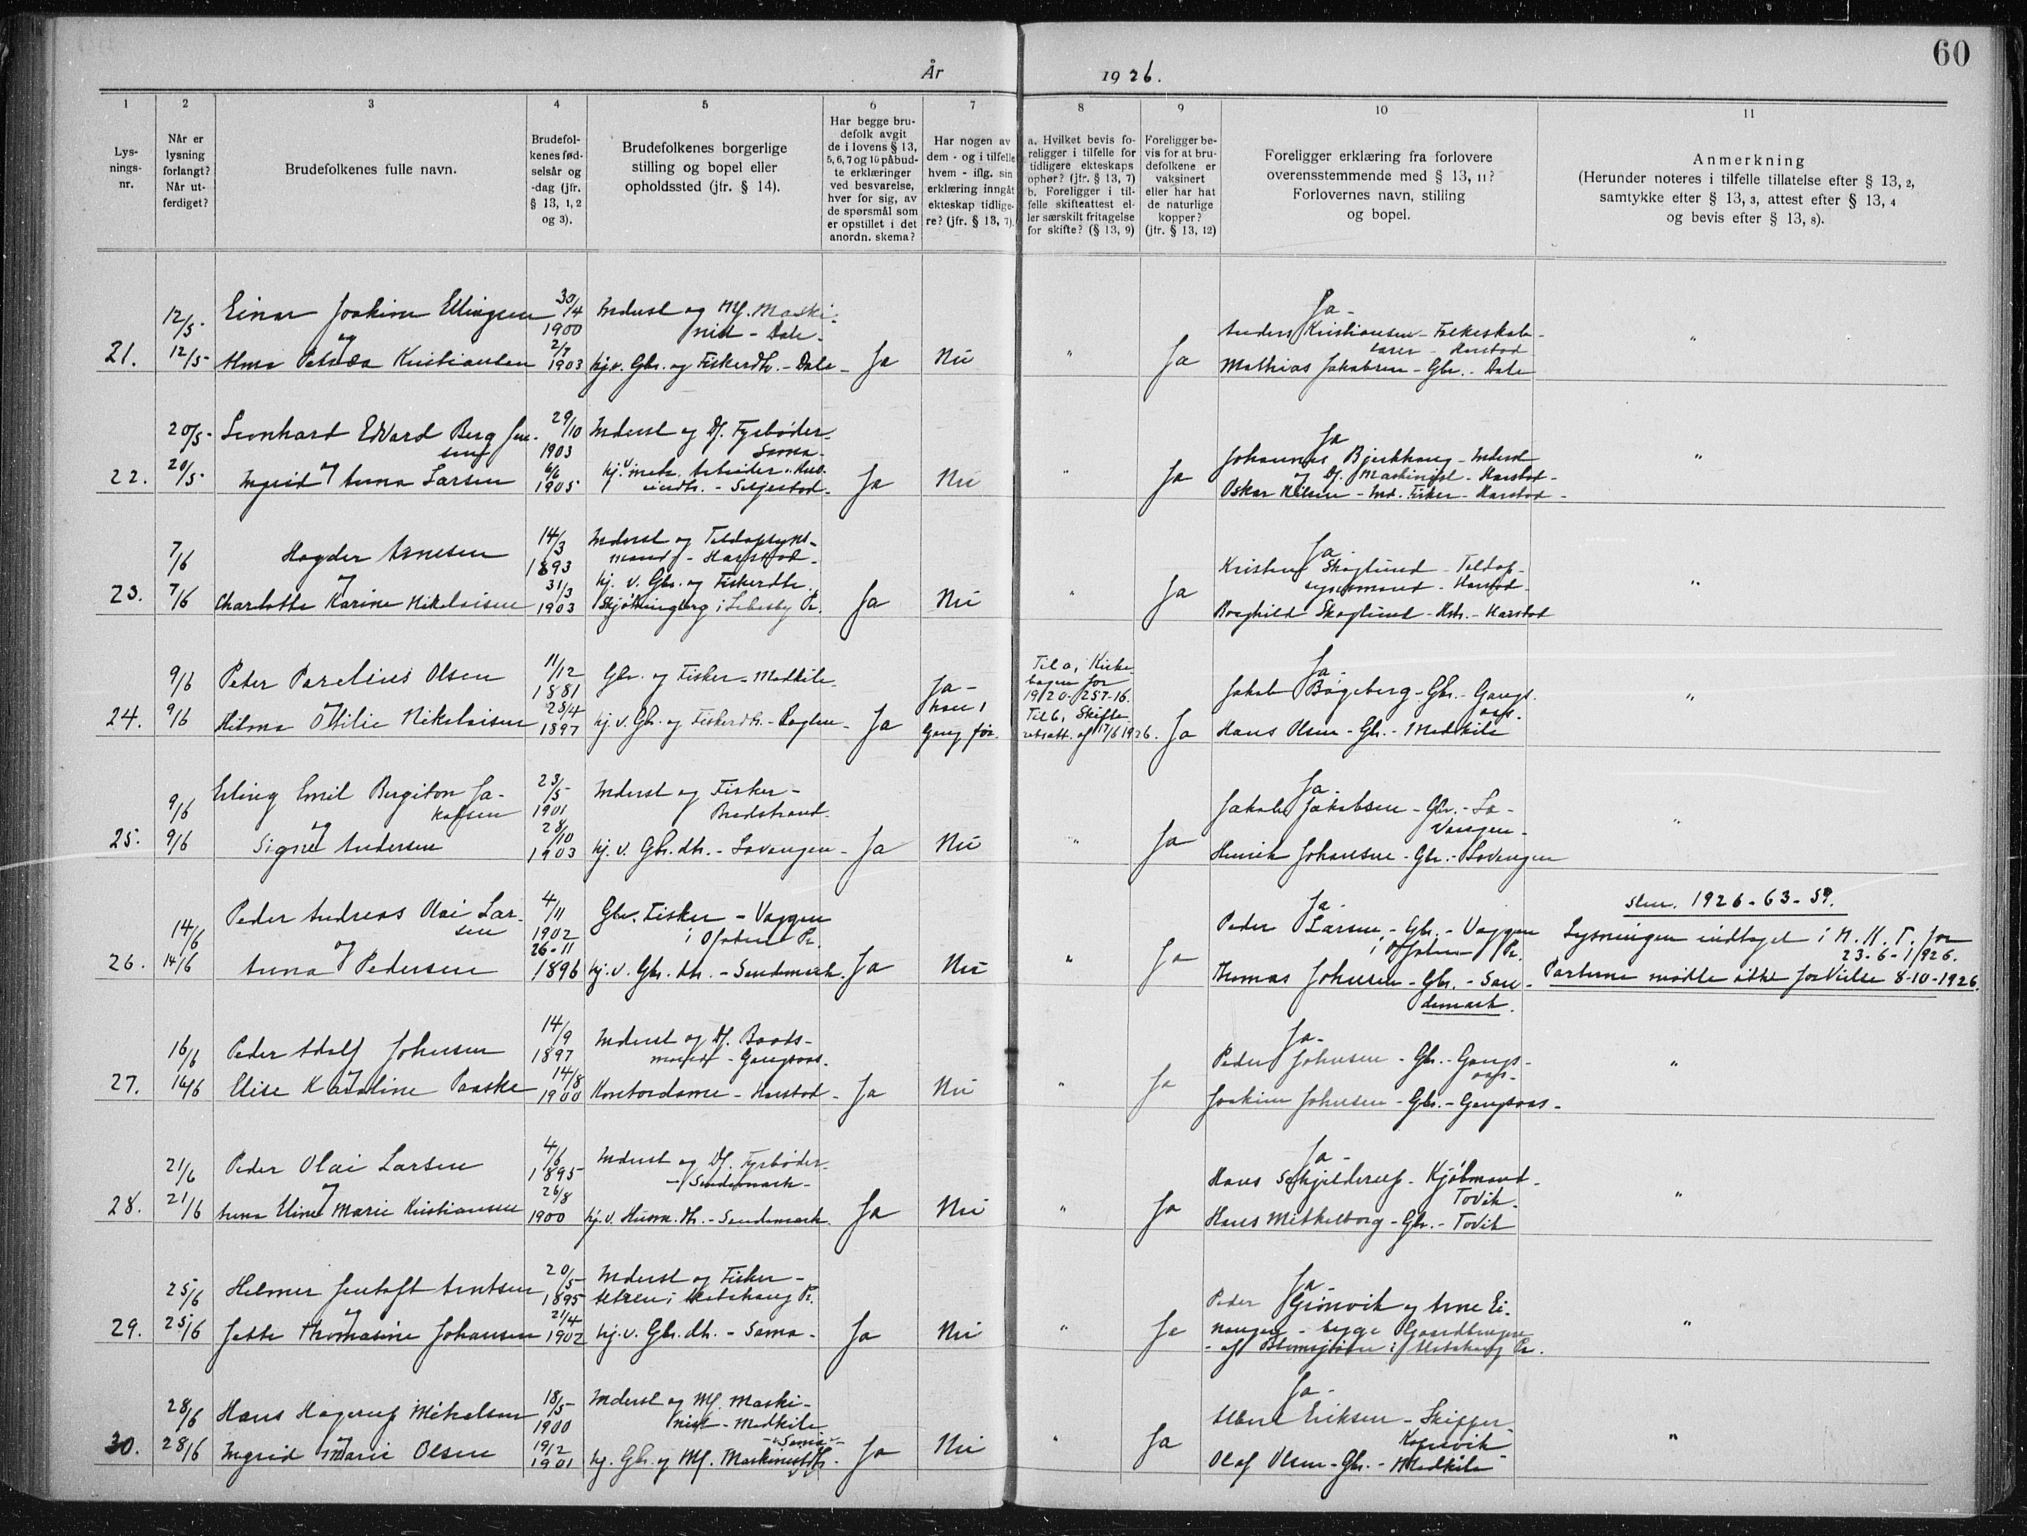 60
År 1926.
1 2 3 4 5 6 7 8 9 10 11
Lys-
nings-
nr.
Når er
lysning
forlangt?
Når ut-
ferdiget?
Brudefolkenes fulle navn.
Brudefol-
kenes fød-
selsår og
-dag (jfr.
§ 13, 1, 2
og 3).
Brudefolkenes borgerlige
stilling og bopel eller
opholdssted (jfr. § 14).
Har begge bru-
defolk avgit
de i lovens § 13,
5, 6, 7 og 10 påbud-
te erklæringer
ved besvarelse,
hver for sig, av
de spørsmål som
er opstillet i det
anordn. skema?
Har nogen av
dem - og i tilfelle
hvem - iflg. sin
erklæring inngåt
ekteskap tidlige-
re? (jfr. § 13, 7).
a. Hvilket bevis fo-
religger i tilfelle for
tidligere ekteskaps
ophør? (jfr. § 13, 7)
b. Foreligger i til-
felle skifteattest el-
ler særskilt fritagelse
for skifte? (§ 13, 9)
Foreligger be-
vis for at bru-
defolkene er
vaksinert
eller har hat
de naturlige
kopper?
(jfr. § 13, 12)
Foreligger erklæring fra forlovere
overensstemmende med § 13, 11?
Forlovernes navn, stilling
og bopel.
Anmerkning
(Herunder noteres i tilfelle tillatelse efter § 13, 2,
samtykke efter § 13, 3, attest efter § 13, 4
og bevis efter § 13, 8).
21.
12/5-
12/5-
Einar Joakim Ellingsen
og
Kristiansen
30/4
1900
2/7
1903
Inderst og Mf. Maski-
nist - Dale-
hj. v. Gbr. og Fiskerdtr. - Dale -
Ja
Nei
"
Ja
Ja -
Anders Kristiansen - Folkeskole-
lærer - Harstad
Mathias Jakobsen - Gbr. - Dale
"
22.
20/5-
20/5-
Leonhard Edvard Berg Jen-
sen
og
Ingrid Anna Larsen
29/10
1903
6/6
1905
Inderst og Df. Fyrbøder-
Sama-
hj. v.
- Seljestad-
Ja
Nei
"
Ja
Ja
Johannes Bjerkhaug - Inderst
og Df. Maskinist - Harstad -
Oskar Nilsen - Ind. Fisker - Harstad -
"
23.
7/6
7/6
Hagder Arnesen
og
Charlotte Karine Nikolaisen
14/3
1893
31/3
1903
Inderst og Toldopsyns-
mand - Harstad-
hj. v. Gbr. og Fiskerdtr.
Skjøtningberg i Lebesby Pr.
Ja
Nei
"
Ja
Ja -
Kristen Skoglund - Toldop-
synsmand - Harstad-
Borghild Skoglund - Hstr. - Harstad
"
24.
9/6
9/6
Peder Parelius Olsen
og
Hilma Ottilie Nikolaisen
11/12
1881
28/4
1897
Gbr. og Fisker - Medkile-
hj. v. Gbr. og Fiskerdtr. -
Ja
Ja -
han 1
gang før.
Til a, Kirke-
bogen for
1920-257-16.
Til b, Skifte-
retsatt. af 17/6 1926.
Ja
Ja -
Jakob Bøgeberg - Gbr. - Gangs-
aas-
Hans Olsen - Gbr. - Medkile
"
25.
9/6
9/6
Erling Emil Bergiton Ja-
kobsen
og
Signe Andersen
23/5-
1901
28/10
1903
Inderst og Fisker -
Bredstrand.
hj. v. Gbr. dtr. - Lavangen -
Ja
Nei
"
Ja
Ja -
Jakob Jakobsen - Gbr. - La-
vangen-
Henrik Johansen - Gbr. - Lavangen
"
26.
14/6
14/6
Peder Andreas Olai Lar-
sen
og
Anna Pedersen
4/11
1902
26-11
1896
Gbr. Fisker - Vaggen
i Ofoten Pr.
hj. v. Gbr. dtr. - Sandemark.
Ja
Nei
"
Ja
Ja -
Peder Larsen - Gbr. - Vaggen
i Ofoten Pr.
Thomas Johnsen - Gbr. - San-
demark.
1926-63-59.
Lysningen indtaget i N. K. T. for
23-6-1926.
Parterne mødte ikke for Vielse 8-10-1926.
27.
16/6
14/6
Peder Adolf Johnsen
og
Elise Karoline Paaske
14/9
1897
14/8
1900
Inderst og Df. Baads-
mand - Gangsaas.
Kontordame - Harstad -
Ja
Nei
"
Ja
Ja -
Peder Johnsen - Gbr. - Gangs-
aas-
Joakim Johnsen - Gbr. - Gangsaas -
"
28.
21/6
21/6
Peder Olai Larsen
og
Anna Eline Marie Kristiansen
4/6
1895-
26/8
1900
Inderst og Df. Fyrbøder-
- Sandemark-
hj. v. Husm. dtr. - Sandemark.
Ja
Nei
"
Ja
Ja -
Hans Schjelderup - Kjøbmand-
Tovik-
Hans Mikkelborg - Gbr. - Tovik
"
29.
25/6
25/6
Helmer Jentoft Arntsen
og
Jette Thomasine Johansen
20/5-
1895
21/4
1902
Inderst og Fisker -
i Alstahaug Pr.
hj. v. Gbr. dtr. - Sama -
Ja
Nei
"
Ja
Ja -
Peder Grønvik og Arne Ei-
- begge Gaardbrugere
- af i Alstahaug Pr.
"
30.
28/6
28/6
Hans Hagerup Mikalsen
og
Ingrid Marie Olsen
18/5-
1900
19/2
1901
Inderst og Mf. Maski-
nist - Medkile
- Sama -
hj. Gbr. og Mf. Maskinistdtr.
Ja
Nei
"
Ja
Ja -
Eriksen - Skipper-
Olaf Olsen - Gbr. - Medkile
"